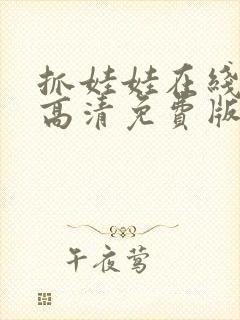 抓娃娃在线
高清免费版
午夜莺